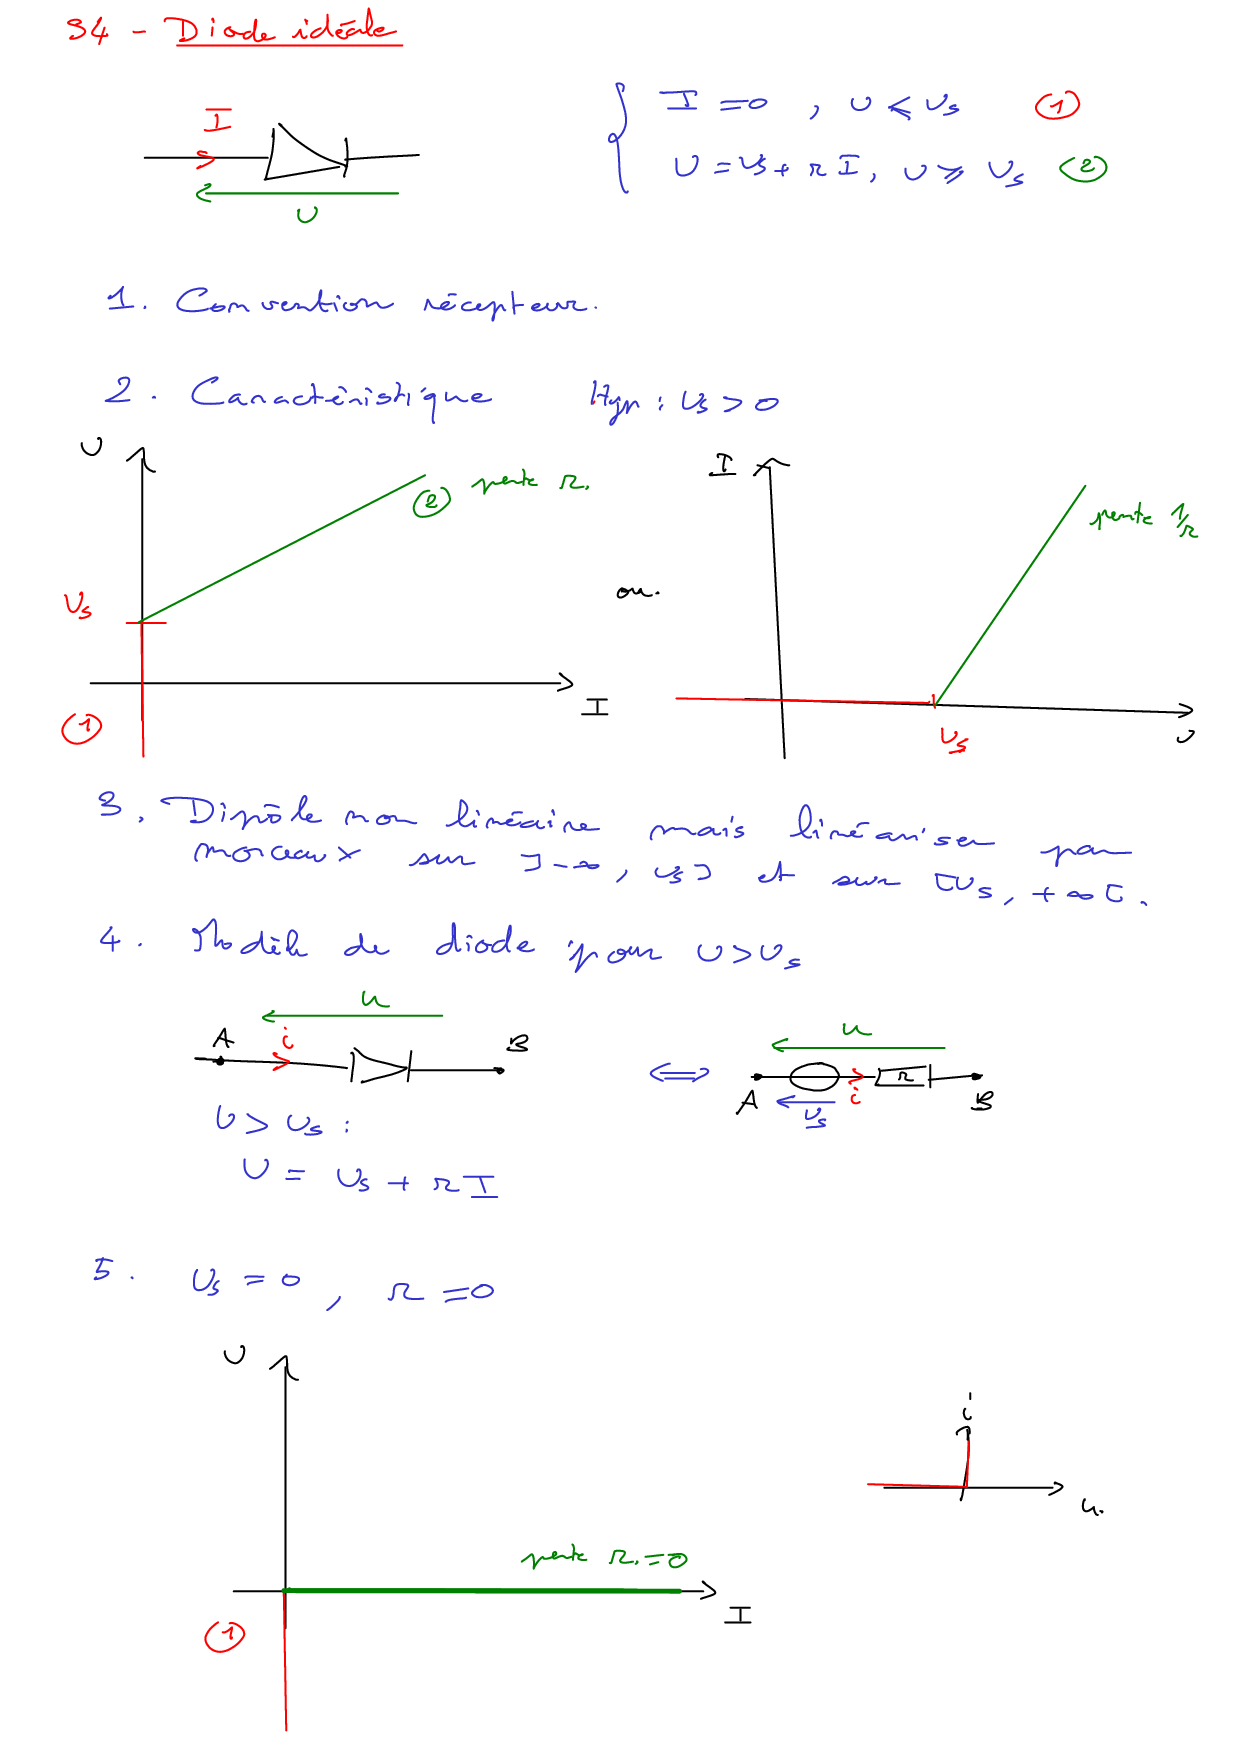 34 - Diode idéale
I
U
I = 0 , U ⩽ Us ①
U = Us + r I, U ⩾ Us ②
1. Convention récepteur.
2. Caractéristique Hyp : Us > 0
U
② pente r.
Us
I
①
ou.
I
pente 1/r
Us
U
3. Dipôle non linéaire mais linéariser par
morceaux sur ]-∞, Us] et sur [Us, +∞[.
4. Modèle de diode pour U > Us
u
A
i
B
⟺
u
r
A
Us
i
B
U > Us :
U = Us + r I
5. Us = 0 , r = 0
U
pente r. = 0
I
①
i
u.